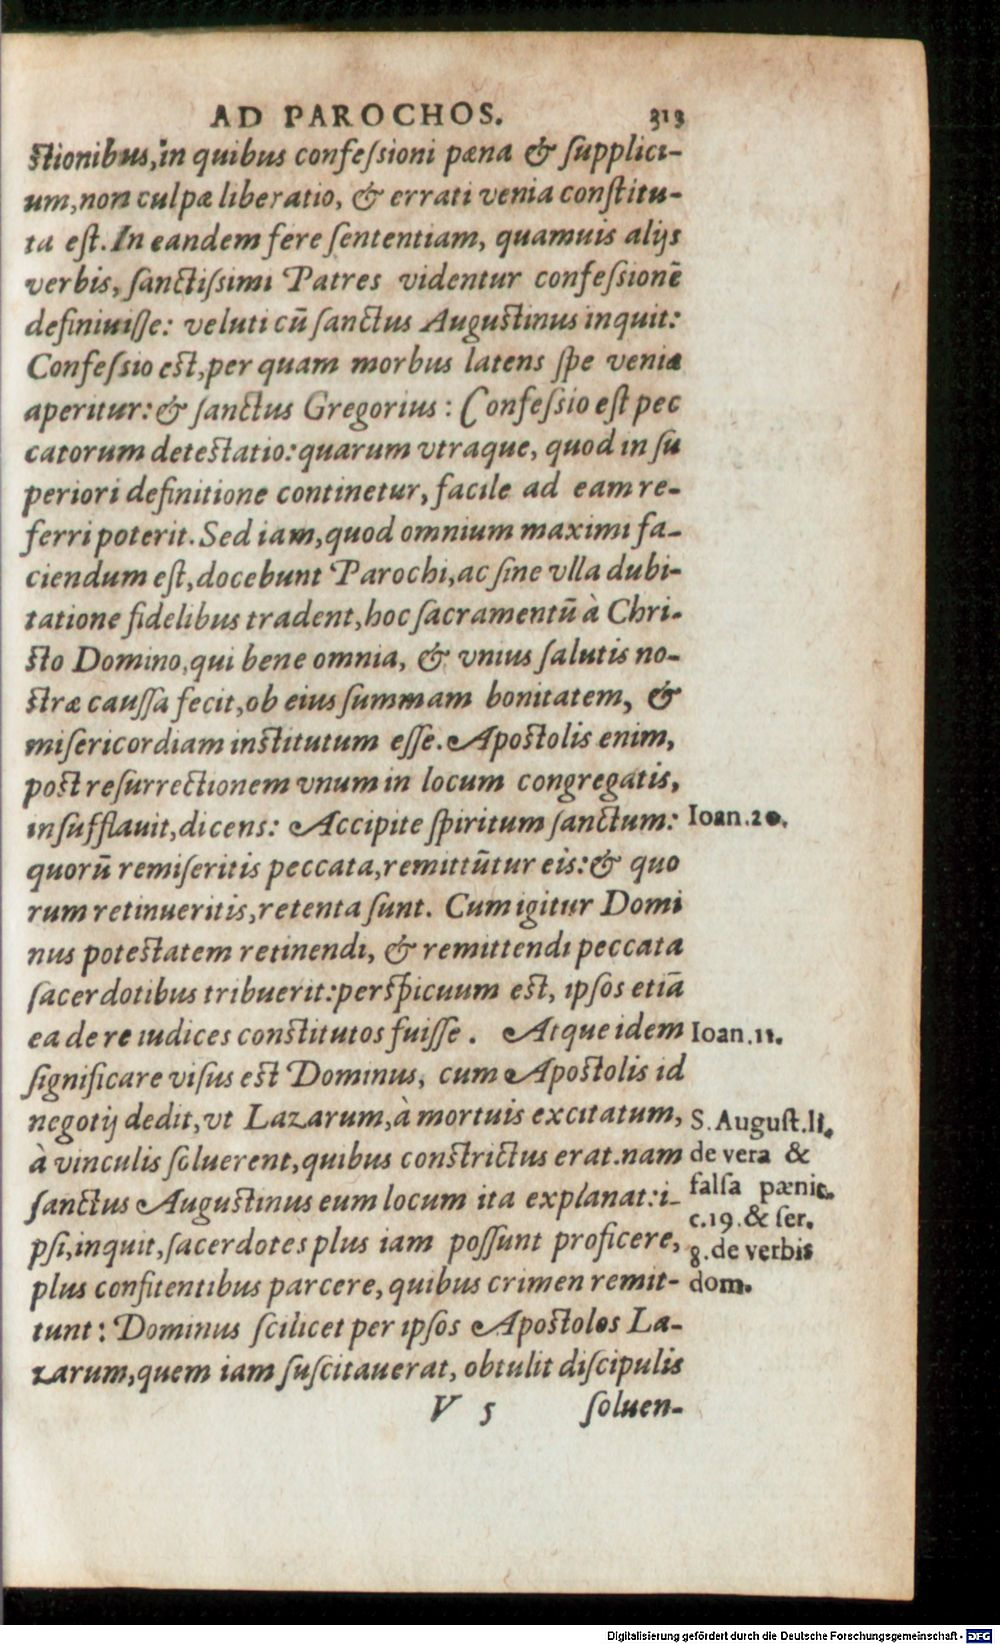 AD PAROCHOS. 313
ſtionibus, in quibus confeſsioni pæna & ſupplici-
um, non culpæ liberatio, & errati venia conſtitu-
ta eſt. In eandem fere ſententiam, quamuis alijs
verbis, ſanctiſsimi Patres videntur confeſsionē
definiuiſſe: veluti cū ſanctus Auguſtinus inquit:
Confeſsio eſt, per quam morbus latens ſpe veniæ
aperitur: & ſanctus Gregorius: Confeſsio eſt pec
catorum deteſtatio: quarum vtraque, quod in ſu
periori definitione continetur, facile ad eam re-
ferri poterit. Sed iam, quod omnium maximi fa-
ciendum eſt, docebunt Parochi, ac ſine vlla dubi-
tatione fidelibus tradent, hoc ſacramentū à Chri-
ſto Domino, qui bene omnia, & vnius ſalutis no-
ſtræ cauſſa fecit, ob eius ſummam bonitatem, &
miſericordiam inſtitutum eſſe. Apoſtolis enim,
poſt reſurrectionem vnum in locum congregatis,
inſufflauit, dicens: Accipite ſpiritum ſanctum: Ioan. 20.
quorū remiſeritis peccata, remittūtur eis: & quo
rum retinueritis, retenta ſunt. Cum igitur Domi
nus poteſtatem retinendi, & remittendi peccata
ſacerdotibus tribuerit: perſpicuum eſt, ipſos etiā
ea de re iudices conſtitutos fuiſſe. Atque idem Ioan. 11.
ſignificare viſus eſt Dominus, cum Apoſtolis id
negotij dedit, vt Lazarum, à mortuis excitatum,
à vinculis ſoluerent, quibus conſtrictus erat. nam
ſanctus Auguſtinus eum locum ita explanat: i-
pſi, inquit, ſacerdotes plus iam poſſunt proficere,
plus confitentibus parcere, quibus crimen remit-
tunt: Dominus ſcilicet per ipſos Apoſtolos La-
zarum, quem iam ſuſcitauerat, obtulit diſcipulis
S. Auguſt. li.
de vera &
falſa pænit.
c. 19. & ſer.
8. de verbis
dom.
V 5 ſoluen-
Digitalisierung gefördert durch die Deutsche Forschungsgemeinschaft - DFG